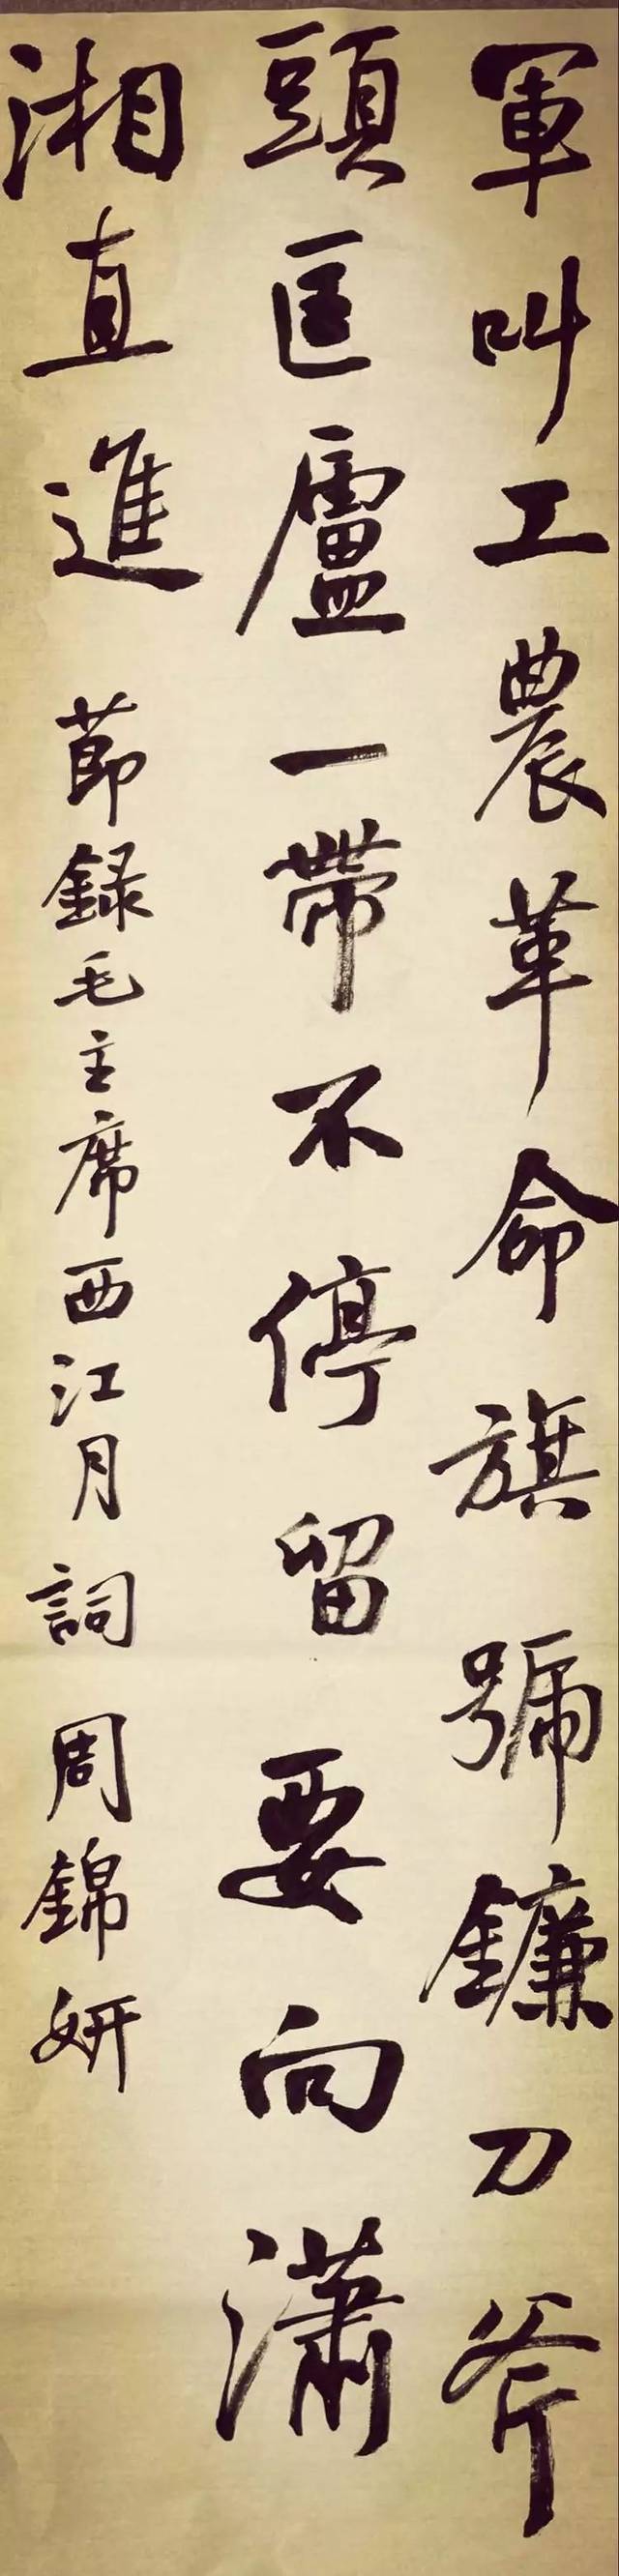 軍叫工農革命旗號鐮刀斧
頭匡廬一帶不停留要向瀟
湘直進 節録毛主席西江月詞 周錦妍